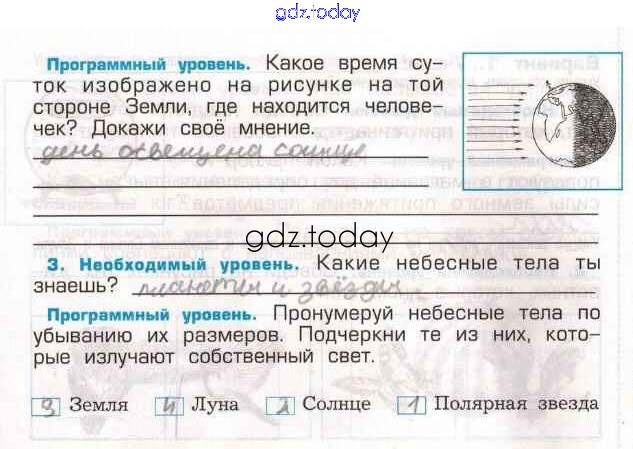 gdz.today
Программный уровень. Какое время су-
ток изображено на рисунке на той
стороне Земли, где находится челове-
чек? Докажи своё мнение.
день освещена солнце
gdz.today
3. Необходимый уровень. Какие небесные тела ты
знаешь? планеты и звёзды
Программный уровень. Пронумеруй небесные тела по
убыванию их размеров. Подчеркни те из них, кото-
рые излучают собственный свет.
3 Земля 4 Луна 2 Солнце 1 Полярная звезда